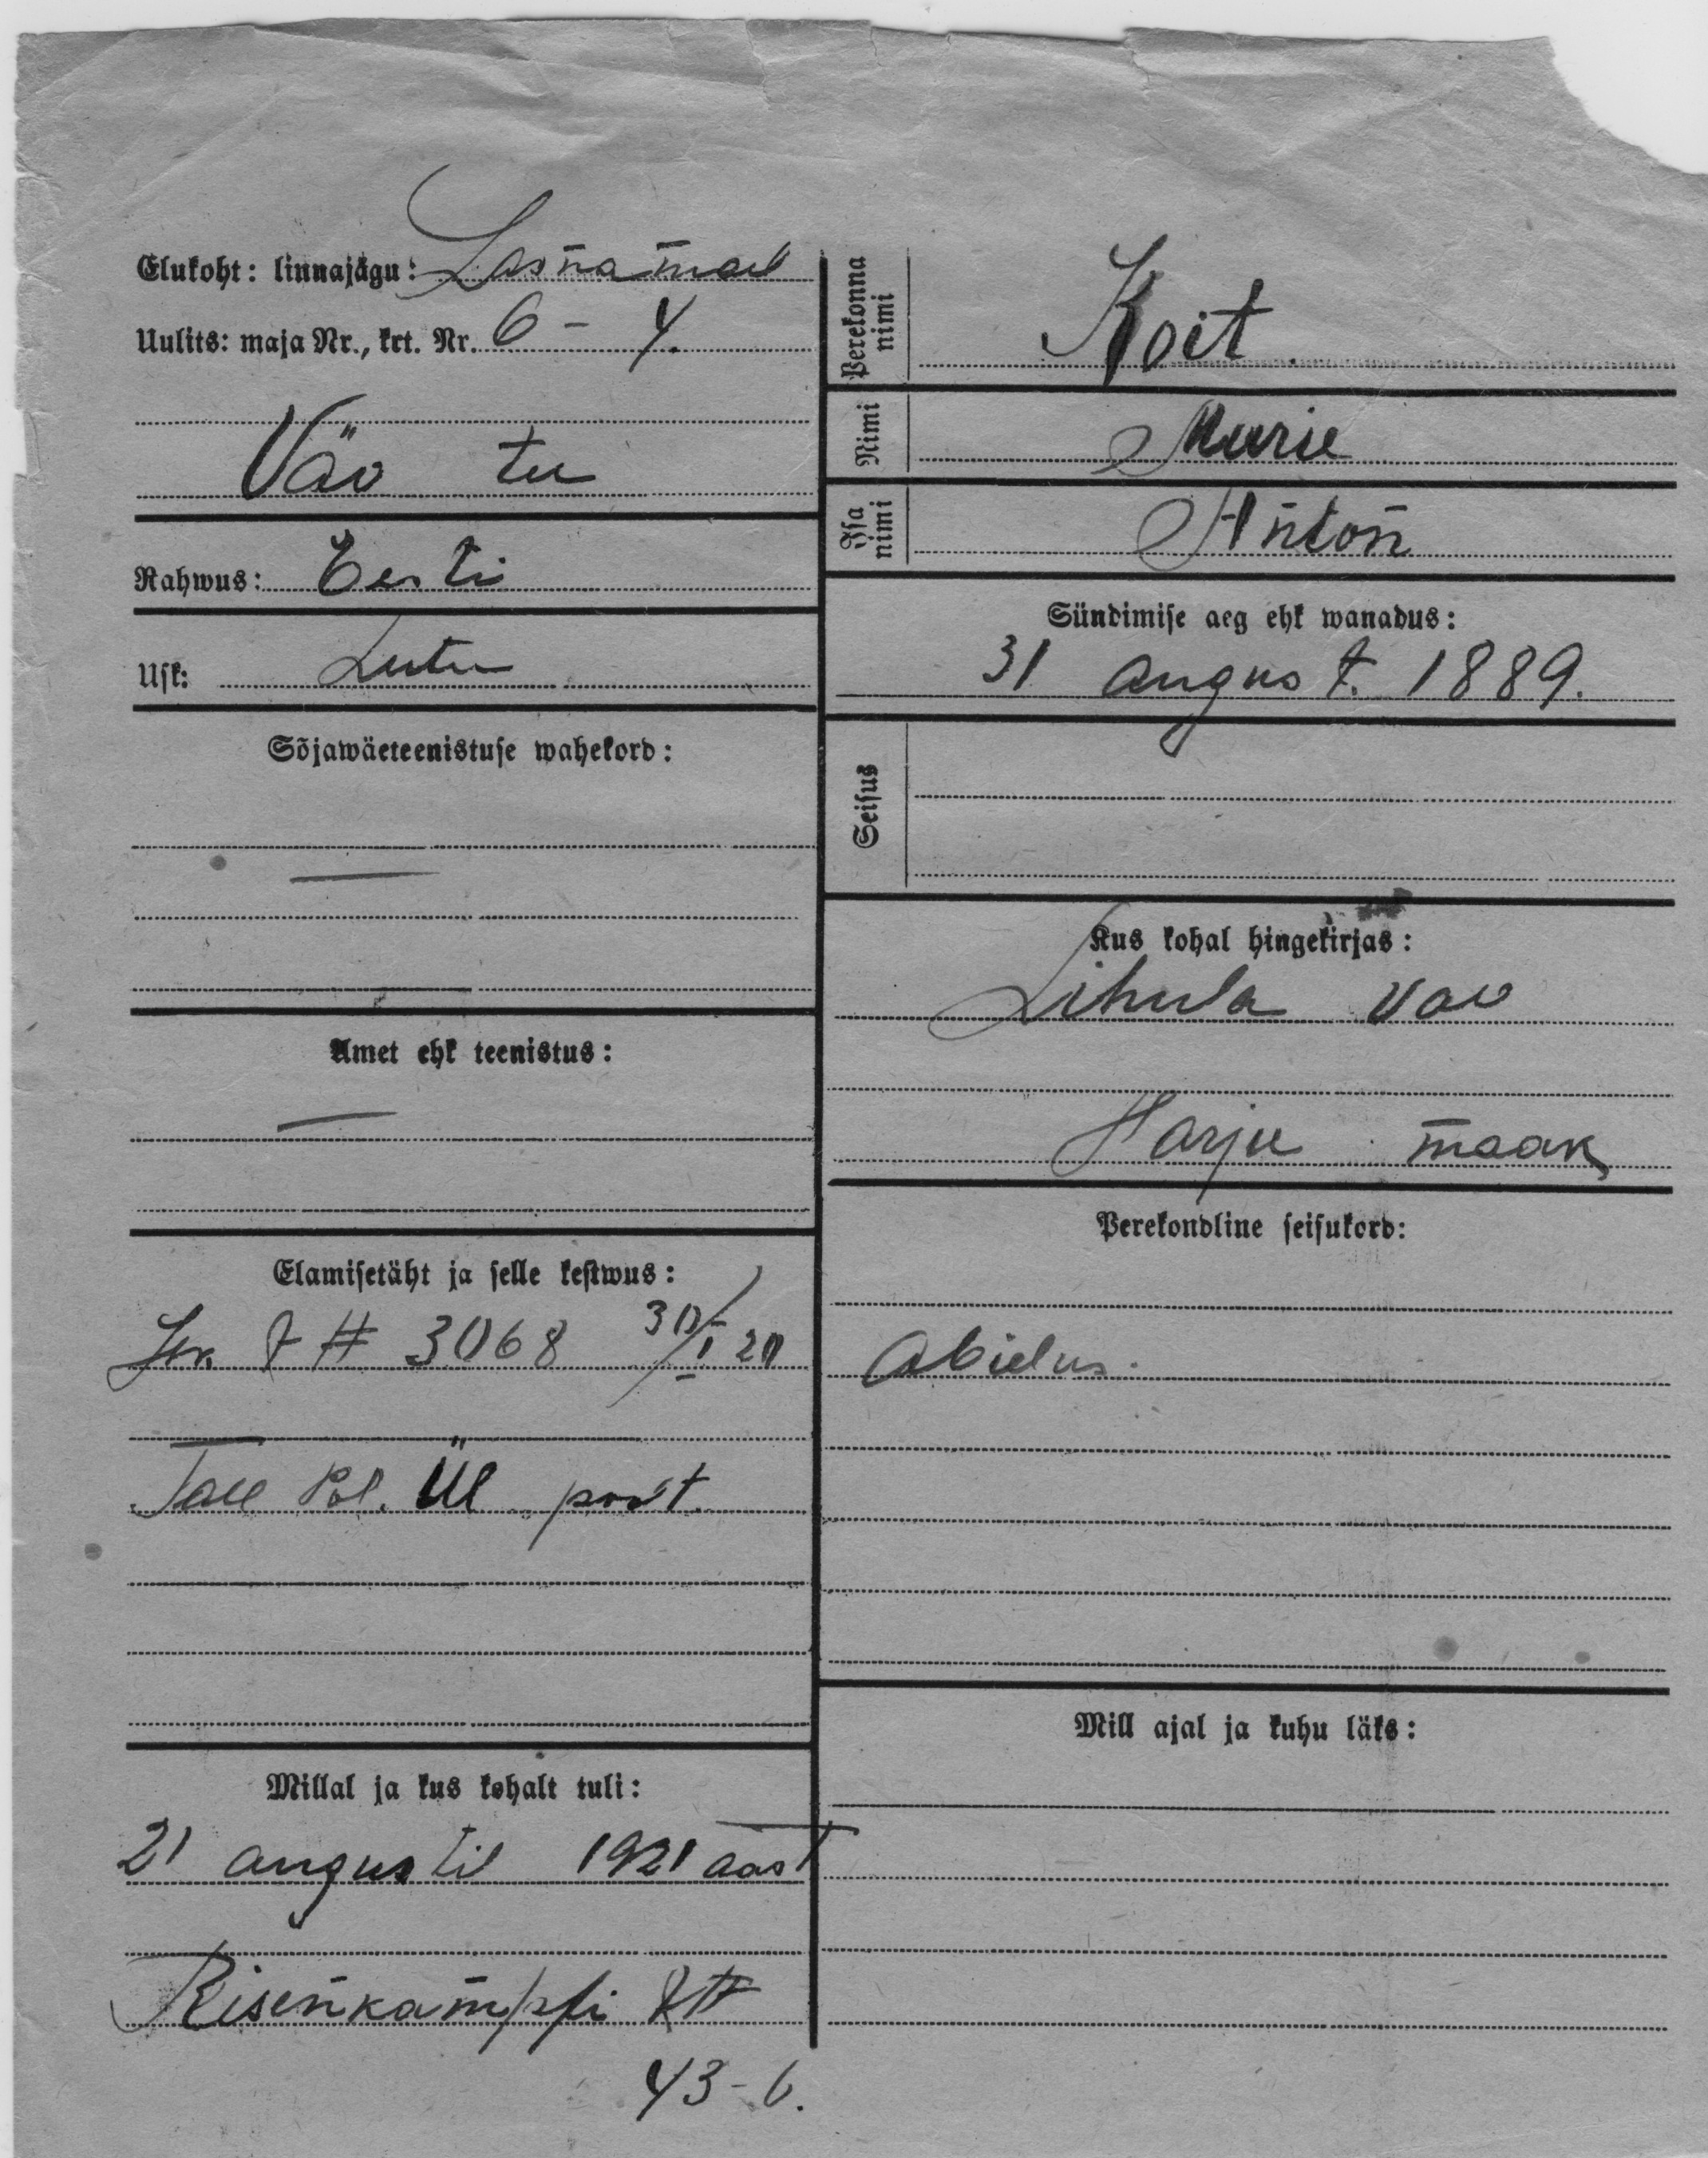 Elukoht: linnajagu: Lasnamäel
Uulits: maja Nr., krt. Nr. 6 – 4.
Väo tee
Rahwus: Eesti
Usk: Lutu
Sõjawäeteenistuse wahekord:
—
Amet ehk teenistus:
—
Elamisetäht ja selle kestwus:
# 3068 30/I 20
Tall Pol. Ül
Millal ja kus kohalt tuli:
21 augustil 1921 aast
Risenkampfi
43-6.
Perekonna nimi
Koit
Nimi
Marie
Isa nimi
Anton
Sündimise aeg ehk wanadus:
31 august. 1889.
Seisus
Kus kohal hingekirjas:
Lihula val
Harju maak
Perekondline seisukord:
Abielus.
Mill ajal ja kuhu läks: